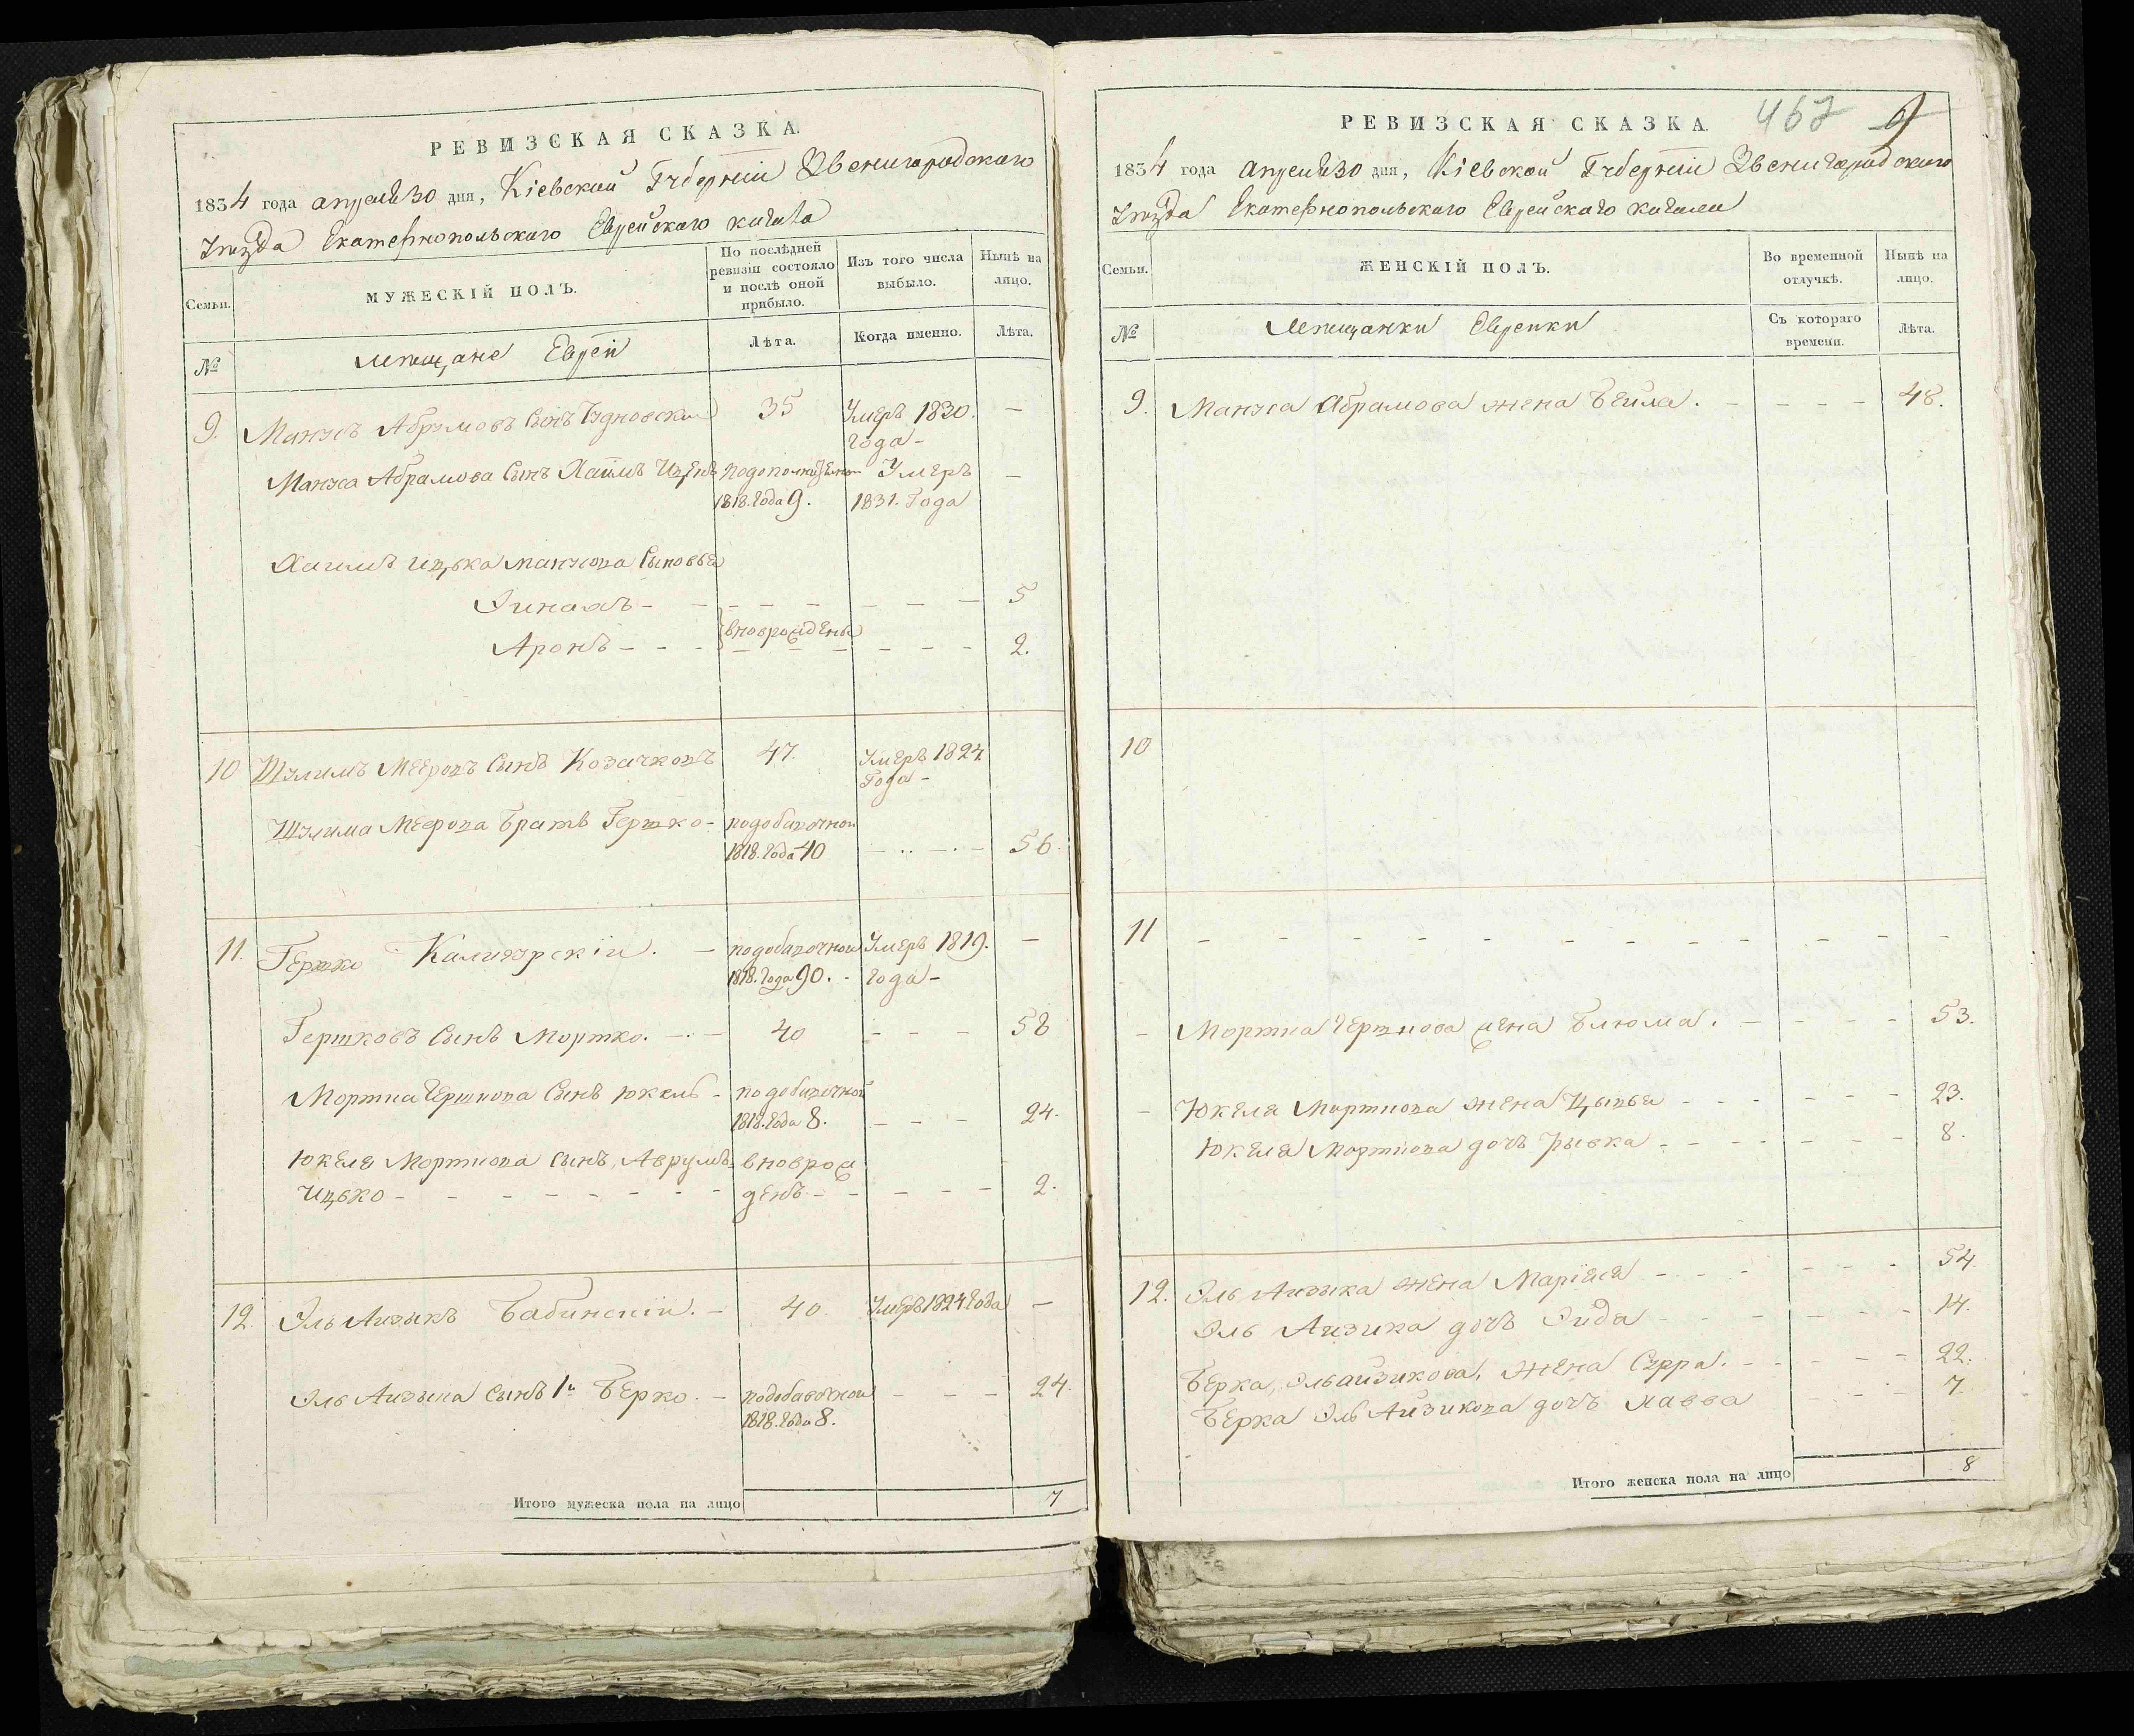 РЕВИЗСКАЯ СКАЗКА.
1834 года апреля 30 дня, Кіевской Губерніи Звенигородскаго
Уѣзда Екатеринопольскаго Еврейскаго кагала
Семьи.
МУЖЕСКІЙ ПОЛЪ.
По послѣдней ревизіи состояло и послѣ оной прибыло.
Изъ того числа выбыло.
Нынѣ на лицо.
№
мещане Евреи
Лѣта.
Когда именно.
Лѣта.
9. Манусъ Абрамовъ Сынъ 35 Умеръ 1830. —
года —
Мануса Абрамова Сынъ Хаимъ Ицько Умеръ —
1818. Года 9. 1831. Года
Хаимъ Ицька Манусова Сыновья
5
Аронъ — вноврождены 2.
10 Шулимъ Мееровъ Сынъ Козачковъ 47. Умеръ 1824
Года —
Шулима Меерова Братъ Гершко — подобавочной
1818. Года 40 — 56.
11. Гершко — подобавочной Умеръ 1819. —
1818. Года 90. — года —
Гершковъ Сынъ Мортко. — 40 — 58
Мортка Гершкова Сынъ Юкель — подобавочной
1818. Года 8. — 24.
Юкеля Морткова Сынъ, Аврумъ вноврож
Ицько — денъ — 2.
12. Эль Аизыкъ Бабинскій. — 40. Умеръ 1824 Года —
Эль Аизыка Сынъ 1й Берко. — подобавочной — 24.
1818. Года 8.
Итого мужеска пола на лицо 7
РЕВИЗСКАЯ СКАЗКА. 467 9
1834 года апреля 30 дня, Кіевской Губерніи Звенигородскаго
Уѣзда Екатеринопольскаго Еврейскаго кагала
Семьи.
ЖЕНСКІЙ ПОЛЪ.
Во временной отлучкѣ.
Нынѣ на лицо.
№
Мещанки Еврейки
Съ котораго времени.
Лѣта.
9. Мануса Абрамова жена Бейла. — 48.
10
11 —
— Мортка Гершкова жена Блюма. — 53.
— Юкеля Морткова жена Цывья — 23.
Юкеля Морткова дочь Рывка — 8.
12. Эль Аизыка жена Маріяся — 54.
Эль Аизика дочь Эйда — 14.
Берка, Эльайзикова, жена Сурра. — 22.
Берка Эль Айзикова дочь Хавва — 7.
Итого женска пола на лицо 8